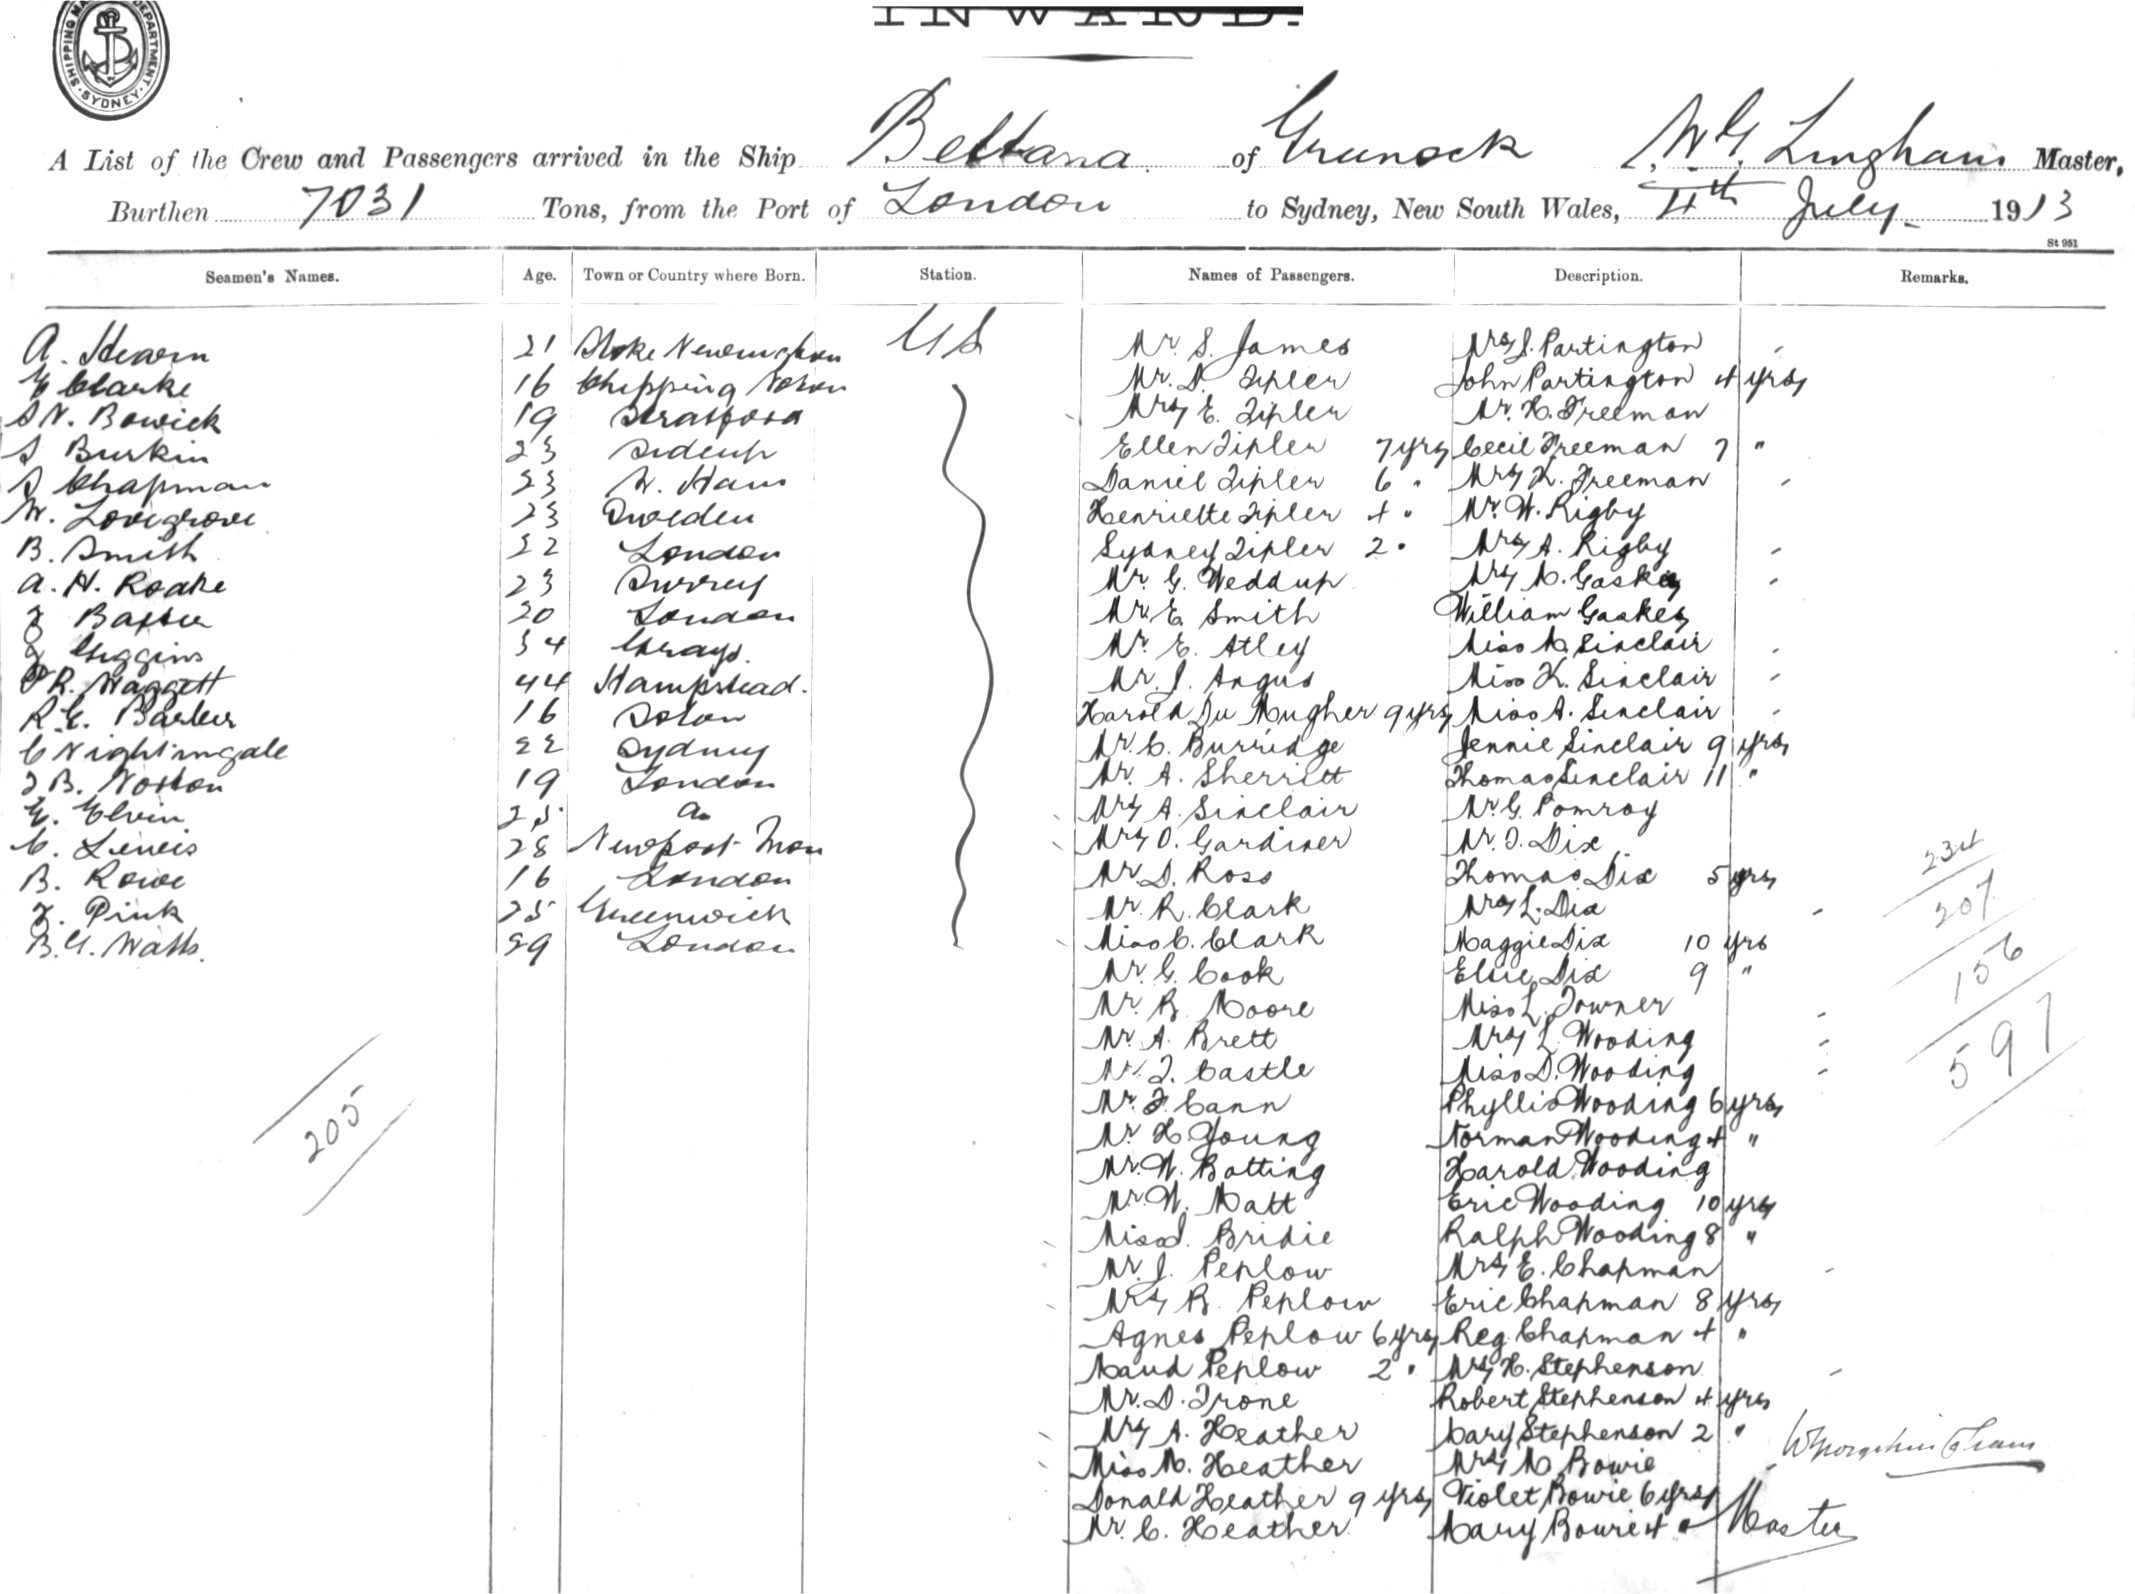 INWARD.
SHIPPING MA DEPARTMENT. SYDNEY.
A List of the Crew and Passengers arrived in the Ship Beltana of Greenock W. G. Lingham Master,
Burthen 7031 Tons, from the Port of London to Sydney, New South Wales, 4th July 1913
St 951
Seamen's Names. Age. Town or Country where Born. Station. Names of Passengers. Description. Remarks.
A. Hearn 21 Stoke Newington Mr. S. James Mrs J. Partington
E Clarke 16 Chipping Norton Mr. D. Tipler John Partington 4 yrs
S N. Bowick 19 Stratford Mrs E. Tipler Mr. H. Freeman
S Burkin 23 Sidcup Ellen Tipler 7 yrs Cecil Freeman 7 "
S Chapman 23 W. Ham Daniel Tipler 6 " Mrs K. Freeman
W. Lovegrove 23 Sweden Henriette Tipler 4 " Mr. W. Rigby
B. Smith 22 London Sydney Tipler 2 " Mrs A. Rigby
A. H. Roake 23 Surrey Mr. G. Weddup Mrs M.
20 London Mr. E. Smith William
Higgins 34 Grays. Mr. E. Atley Miss M. Sinclair
P R. Waggett 44 Hampstead. Mr. J. Angus Miss K. Sinclair
R. G. Barber 16 Harold Du Mugher 9 yrs Miss A. Sinclair
C Nightingale 22 Sydney Mr. C. Burridge Jennie Sinclair 9 yrs
J B. Norton 19 London Mr. A. Sherritt Thomas Sinclair 11 "
E. Elvin 25 Mrs A. Sinclair Mr. G. Pomroy
C. Lewis 28 Newport Mon Mrs O. Gardiner Mr. T. Dix
B. Rowe 16 London Mr. D. Ross Thomas Dix 5 yrs
F. Pink 25 Greenwich Mr. R. Clark Mrs L. Dix
B. G. Watts. 29 London Miss C. Clark Maggie Dix 10 yrs
Mr. G. Cook Elsie Dix 9 "
Mr. B. Moore Miss L. Towner
Mr. A. Brett Mrs L. Wooding
Mr. T. Castle Miss D. Wooding
Mr. F. Cann Phyllis Wooding 6 yrs
Mr. H. Young Norman Wooding 4 "
Mr. W. Botting Harold Wooding
Mr. W. Matt Eric Wooding 10 yrs
Miss J. Bridie Ralph Wooding 8 "
Mr. J. Peplow Mrs E. Chapman
Mrs B. Peplow Eric Chapman 8 yrs
Agnes Peplow 6 yrs Reg. Chapman 4 "
Maud Peplow 2 " Mrs H. Stephenson
Mr. D. Trone Robert Stephenson 4 yrs
Mrs A. Heather Stephenson 2 "
Miss M. Heather Mrs M Bowie
Donald Heather 9 yrs Violet Bowie 6 yrs
Mr. C. Heather Mary Bowie 4 " Master
205
234
207
156
597